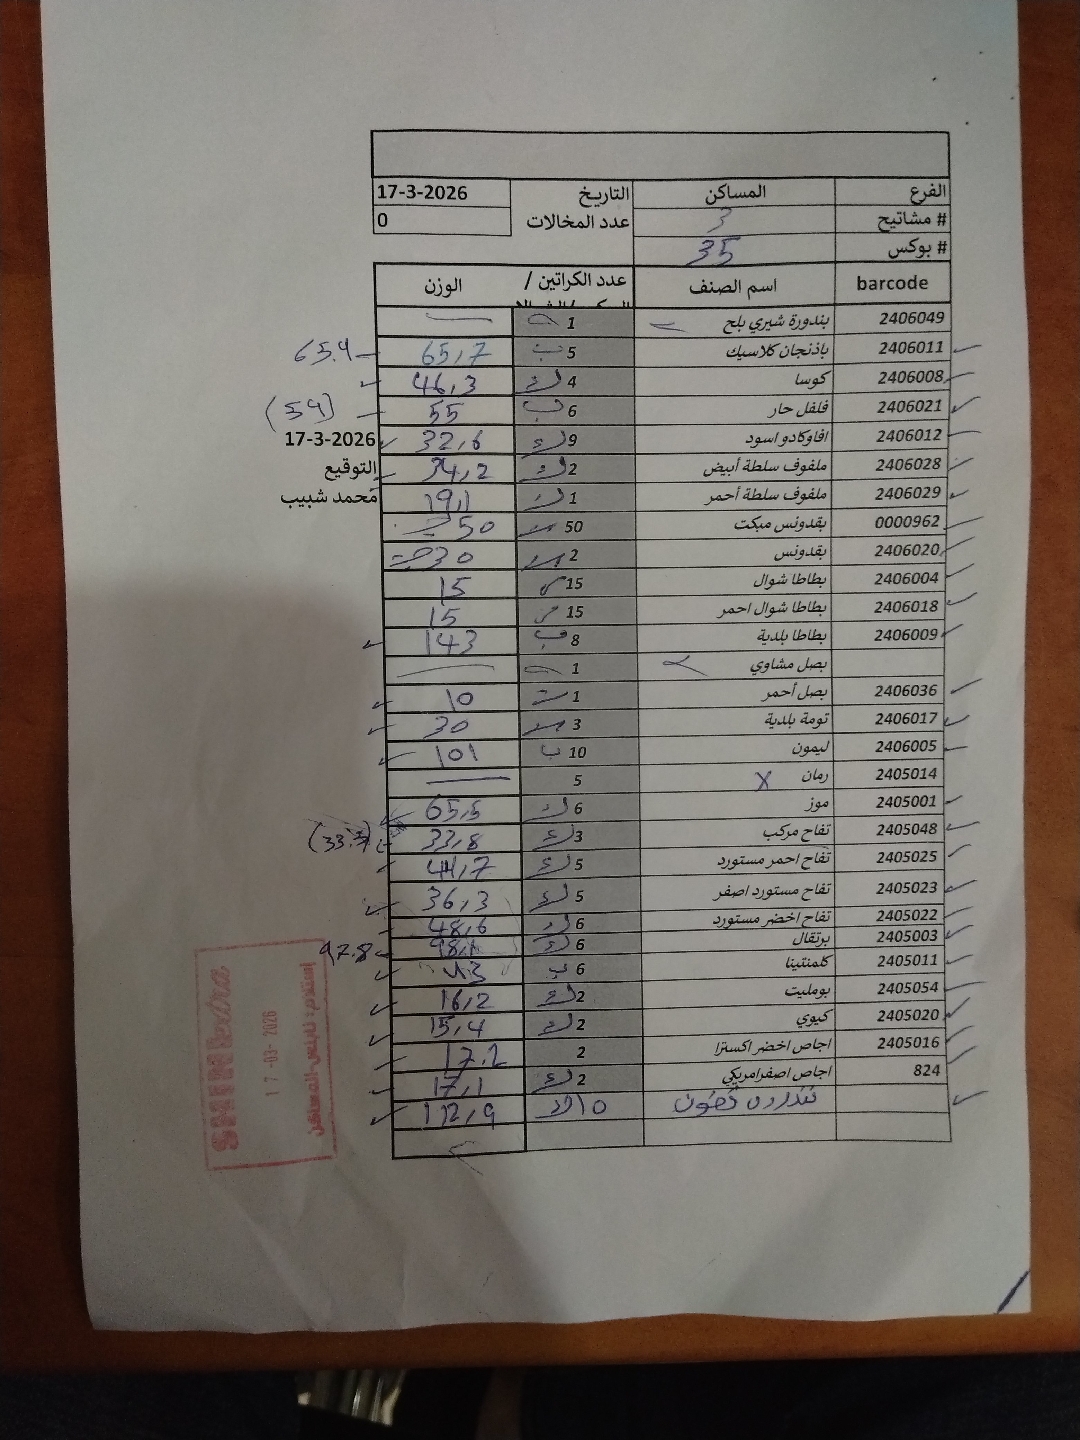 الفرع المساكن التاريخ 17-3-2026
# مشاتيح 3 عدد المخالات 0
# بوكس 35
barcode اسم الصنف عدد الكراتين / الوزن
2406049 بندورة شيري بلح 1
2406011 باذنجان كلاسيك 5 ب 65,7 65.4
2406008 كوسا 4 46,3
2406021 فلفل حار 6 ب 55 (54)
2406012 افاوكادو اسود 9 32,6 17-3-2026
2406028 ملفوف سلطة أبيض 2 34,2 التوقيع
2406029 ملفوف سلطة أحمر 1 19,1 محمد شبيب
0000962 بقدونس مبكت 50 50
2406020 بقدونس 2 30
2406004 بطاطا شوال 15 15
2406018 بطاطا شوال احمر 15 15
2406009 بطاطا بلدية 8 ب 143
بصل مشاوي 1
2406036 بصل أحمر 1 10
2406017 تومة بلدية 3 30
2406005 ليمون 10 ب 101
2405014 رمان X 5
2405001 موز 6 65,5
2405048 تفاح مركب 3 33,8 (33.3)
2405025 تفاح احمر مستورد 5 44,7
2405023 تفاح مستورد اصفر 5 36,3
2405022 تفاح اخضر مستورد 6 48,6
2405003 برتقال 6 97.8
2405011 كلمنتينا 6 ب
2405054 بومليت 2 16,2
2405020 كيوي 2 15,4
2405016 اجاص اخضر اكسترا 2 17.2
824 اجاص اصفرامريكي 2 17,1
10 112,9
SHINI extra
17-03-2026
إستلام: نابلس-المساكن